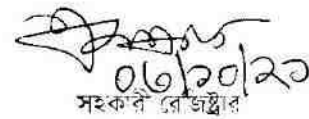 ০৬/১০/২১
সহকারী রেজিষ্ট্রার